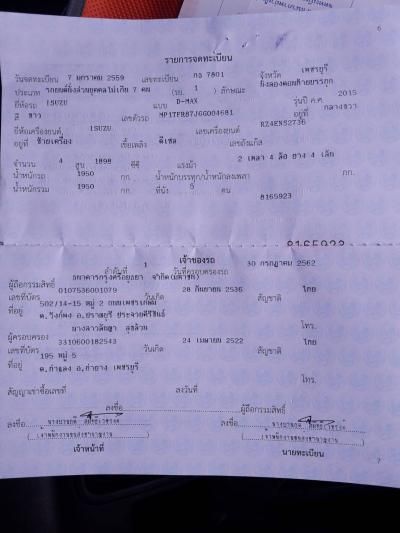 6
รายการจดทะเบียน
วันจดทะเบียน 7 มกราคม 2559 เลขทะเบียน กง 7801 จังหวัด เพชรบุรี
ประเภท รถยนต์นั่งส่วนบุคคลไม่เกิน 7 คน (รย. 1 ) ลักษณะ นั่งสองตอนท้ายบรรทุก
ยี่ห้อรถ ISUZU แบบ D-MAX รุ่นปี ค.ศ. 2015
สี ขาว เลขตัวรถ MP1TFR87JGG004681 อยู่ที่ กลางขวา
ยี่ห้อเครื่องยนต์ ISUZU เลขเครื่องยนต์ RZ4ENS2736
อยู่ที่ ซ้ายเครื่อง เชื้อเพลิง ดีเซล เลขถังแก๊ส
จำนวน 4 สูบ 1898 ซีซี แรงม้า 2 เพลา 4 ล้อ ยาง 4 เส้น
น้ำหนักรถ 1950 กก. น้ำหนักบรรทุก/น้ำหนักลงเพลา กก.
น้ำหนักรวม 1950 กก. ที่นั่ง 5 คน
8165923
8165923
เจ้าของรถ
ลำดับที่ 1 วันที่ครอบครองรถ 30 กรกฎาคม 2562
ผู้ถือกรรมสิทธิ์ ธนาคารกรุงศรีอยุธยา จำกัด(มหาชน)
เลขที่บัตร 0107536001079 วันเกิด 28 กันยายน 2536 สัญชาติ ไทย
ที่อยู่ 502/14-15 หมู่ 2 ถนนเพชรเกษม
ต.วังก์พง อ.ปราณบุรี ประจวบคีรีขันธ์ โทร.
ผู้ครอบครอง
เลขที่บัตร 3310600182543 วันเกิด 24 เมษายน 2522 สัญชาติ ไทย
ที่อยู่ 195 หมู่ 5
ต.ท่าแลง อ.ท่ายาง เพชรบุรี โทร.
สัญญาเช่าซื้อเลขที่ ลงวันที่
ลงชื่อ ผู้ถือกรรมสิทธิ์
ลงชื่อ ลงชื่อ
(เจ้าพนักงานขนส่งชำนาญงาน) (เจ้าพนักงานขนส่งชำนาญงาน)
เจ้าหน้าที่ นายทะเบียน
7